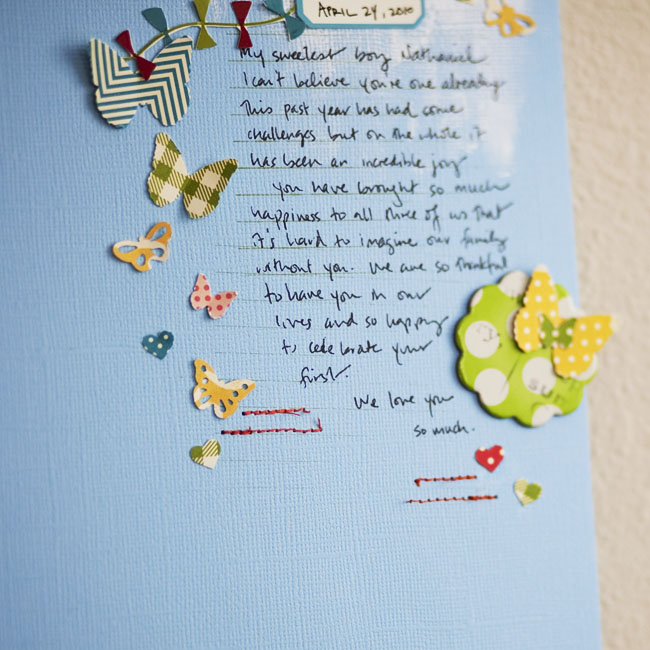 APRIL 24, 2010
My sweetest boy Nathaniel
I can't believe you're one already
This past year has had some
challenges but on the whole it
has been an incredible joy
you have brought so much
happiness to all three of us that
it's hard to imagine our family
without you. We are so thankful
to have you in our
lives and so happy
to celebrate your
first.
We love you
so much.